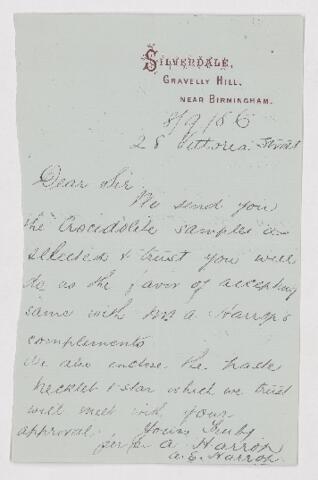 SILVERDALE,
GRAVELLY HILL,
NEAR BIRMINGHAM.
8/9/86
28 Vittorea Street
Dear Sir
We send you
the Crocidolite samples as
selected & trust you will
do us the favor of accepting
same with Mr A Harrop's
complements
We also enclose the
necklet & star which we trust
will meet with your
approval. Yours Truly
A Harrop
A. E. Harrop